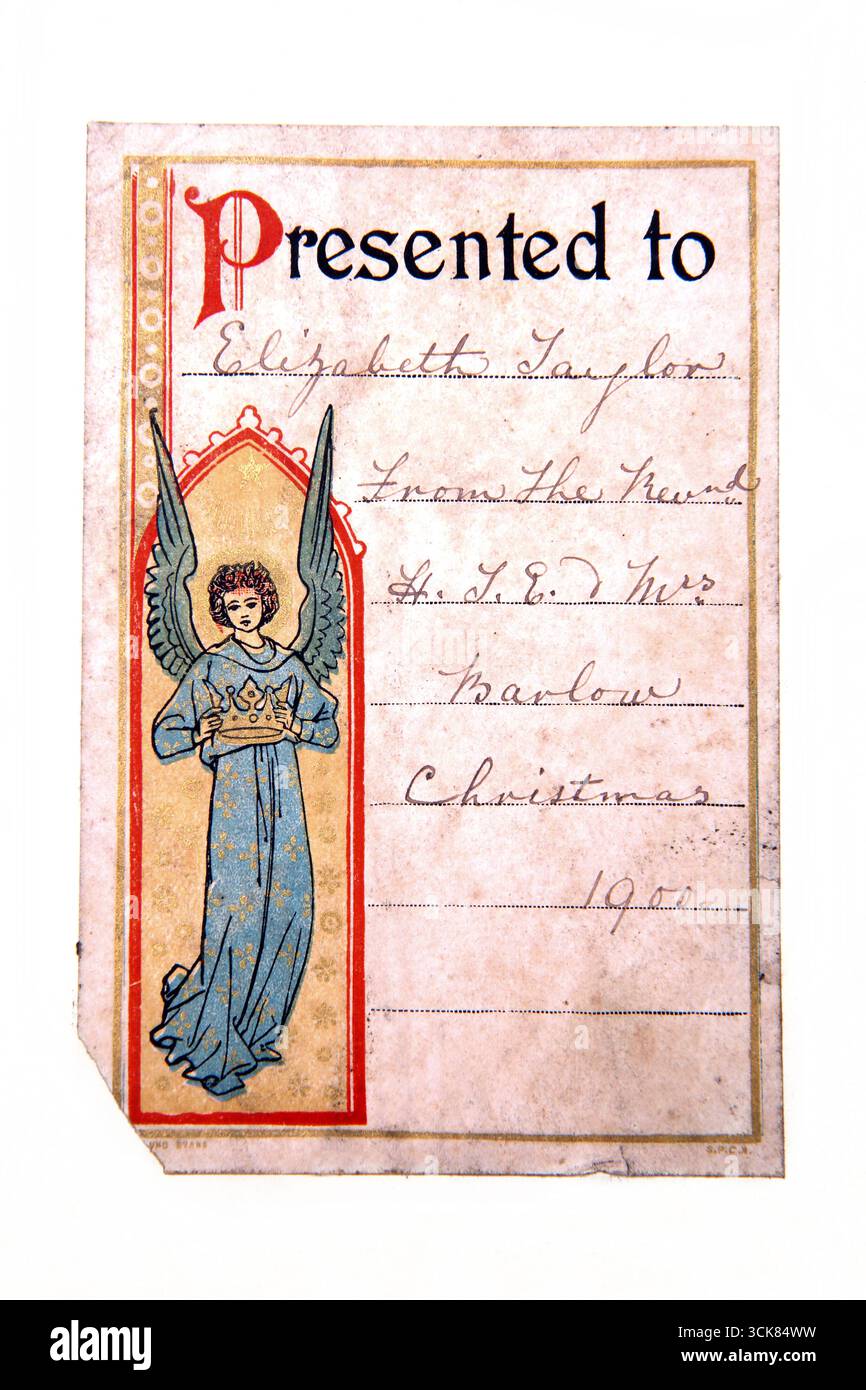 Presented to
Elizabeth Taylor
From the Revnd
H. T. E. & Mrs
Barlow
Christmas
1900
EVANS
S.P.C.K.
alamy
Image ID: 3CK84WW
www.alamy.com